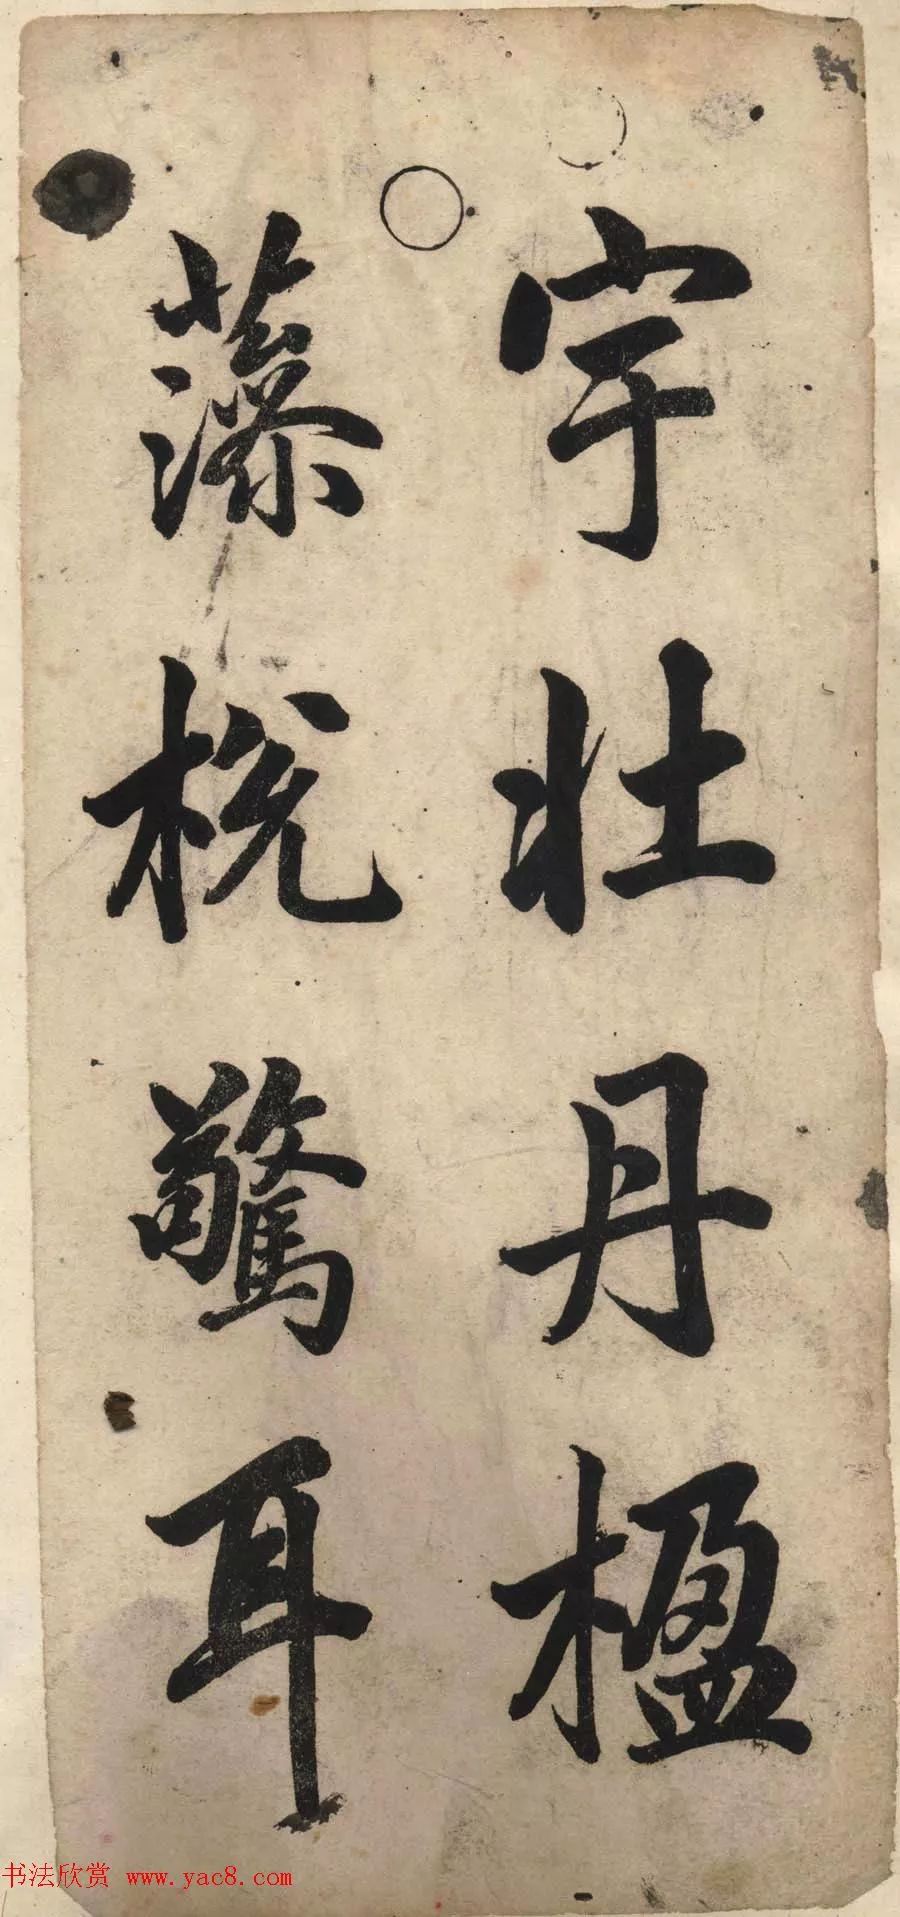 宇壯丹楹
藻梲驚耳
书法欣赏 www.yac8.com